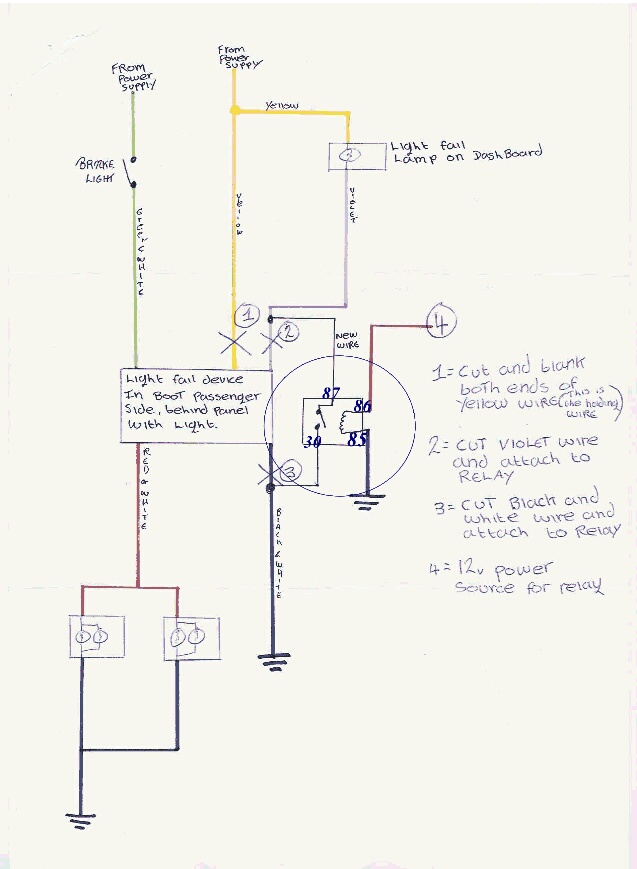 FROM
POWER
SUPPLY
From
POWER
SUPPLY
Yellow
Light fail
Lamp on DashBoard
BRAKE
LIGHT
GREEN & WHITE
YELLOW
VIOLET
1
2
NEW
WIRE
4
Light fail device
In BOOT Passenger
Side, behind Panel
With Light.
87
86
30
85
3
RED & WHITE
BLACK & WHITE
1= Cut and blank
both ends of
Yellow WIRE (This is the holding WIRE)
2= CUT VIOLET wire
and attach to
RELAY
3= CUT Black and
white wire and
attach to Relay
4= 12v power
Source for relay